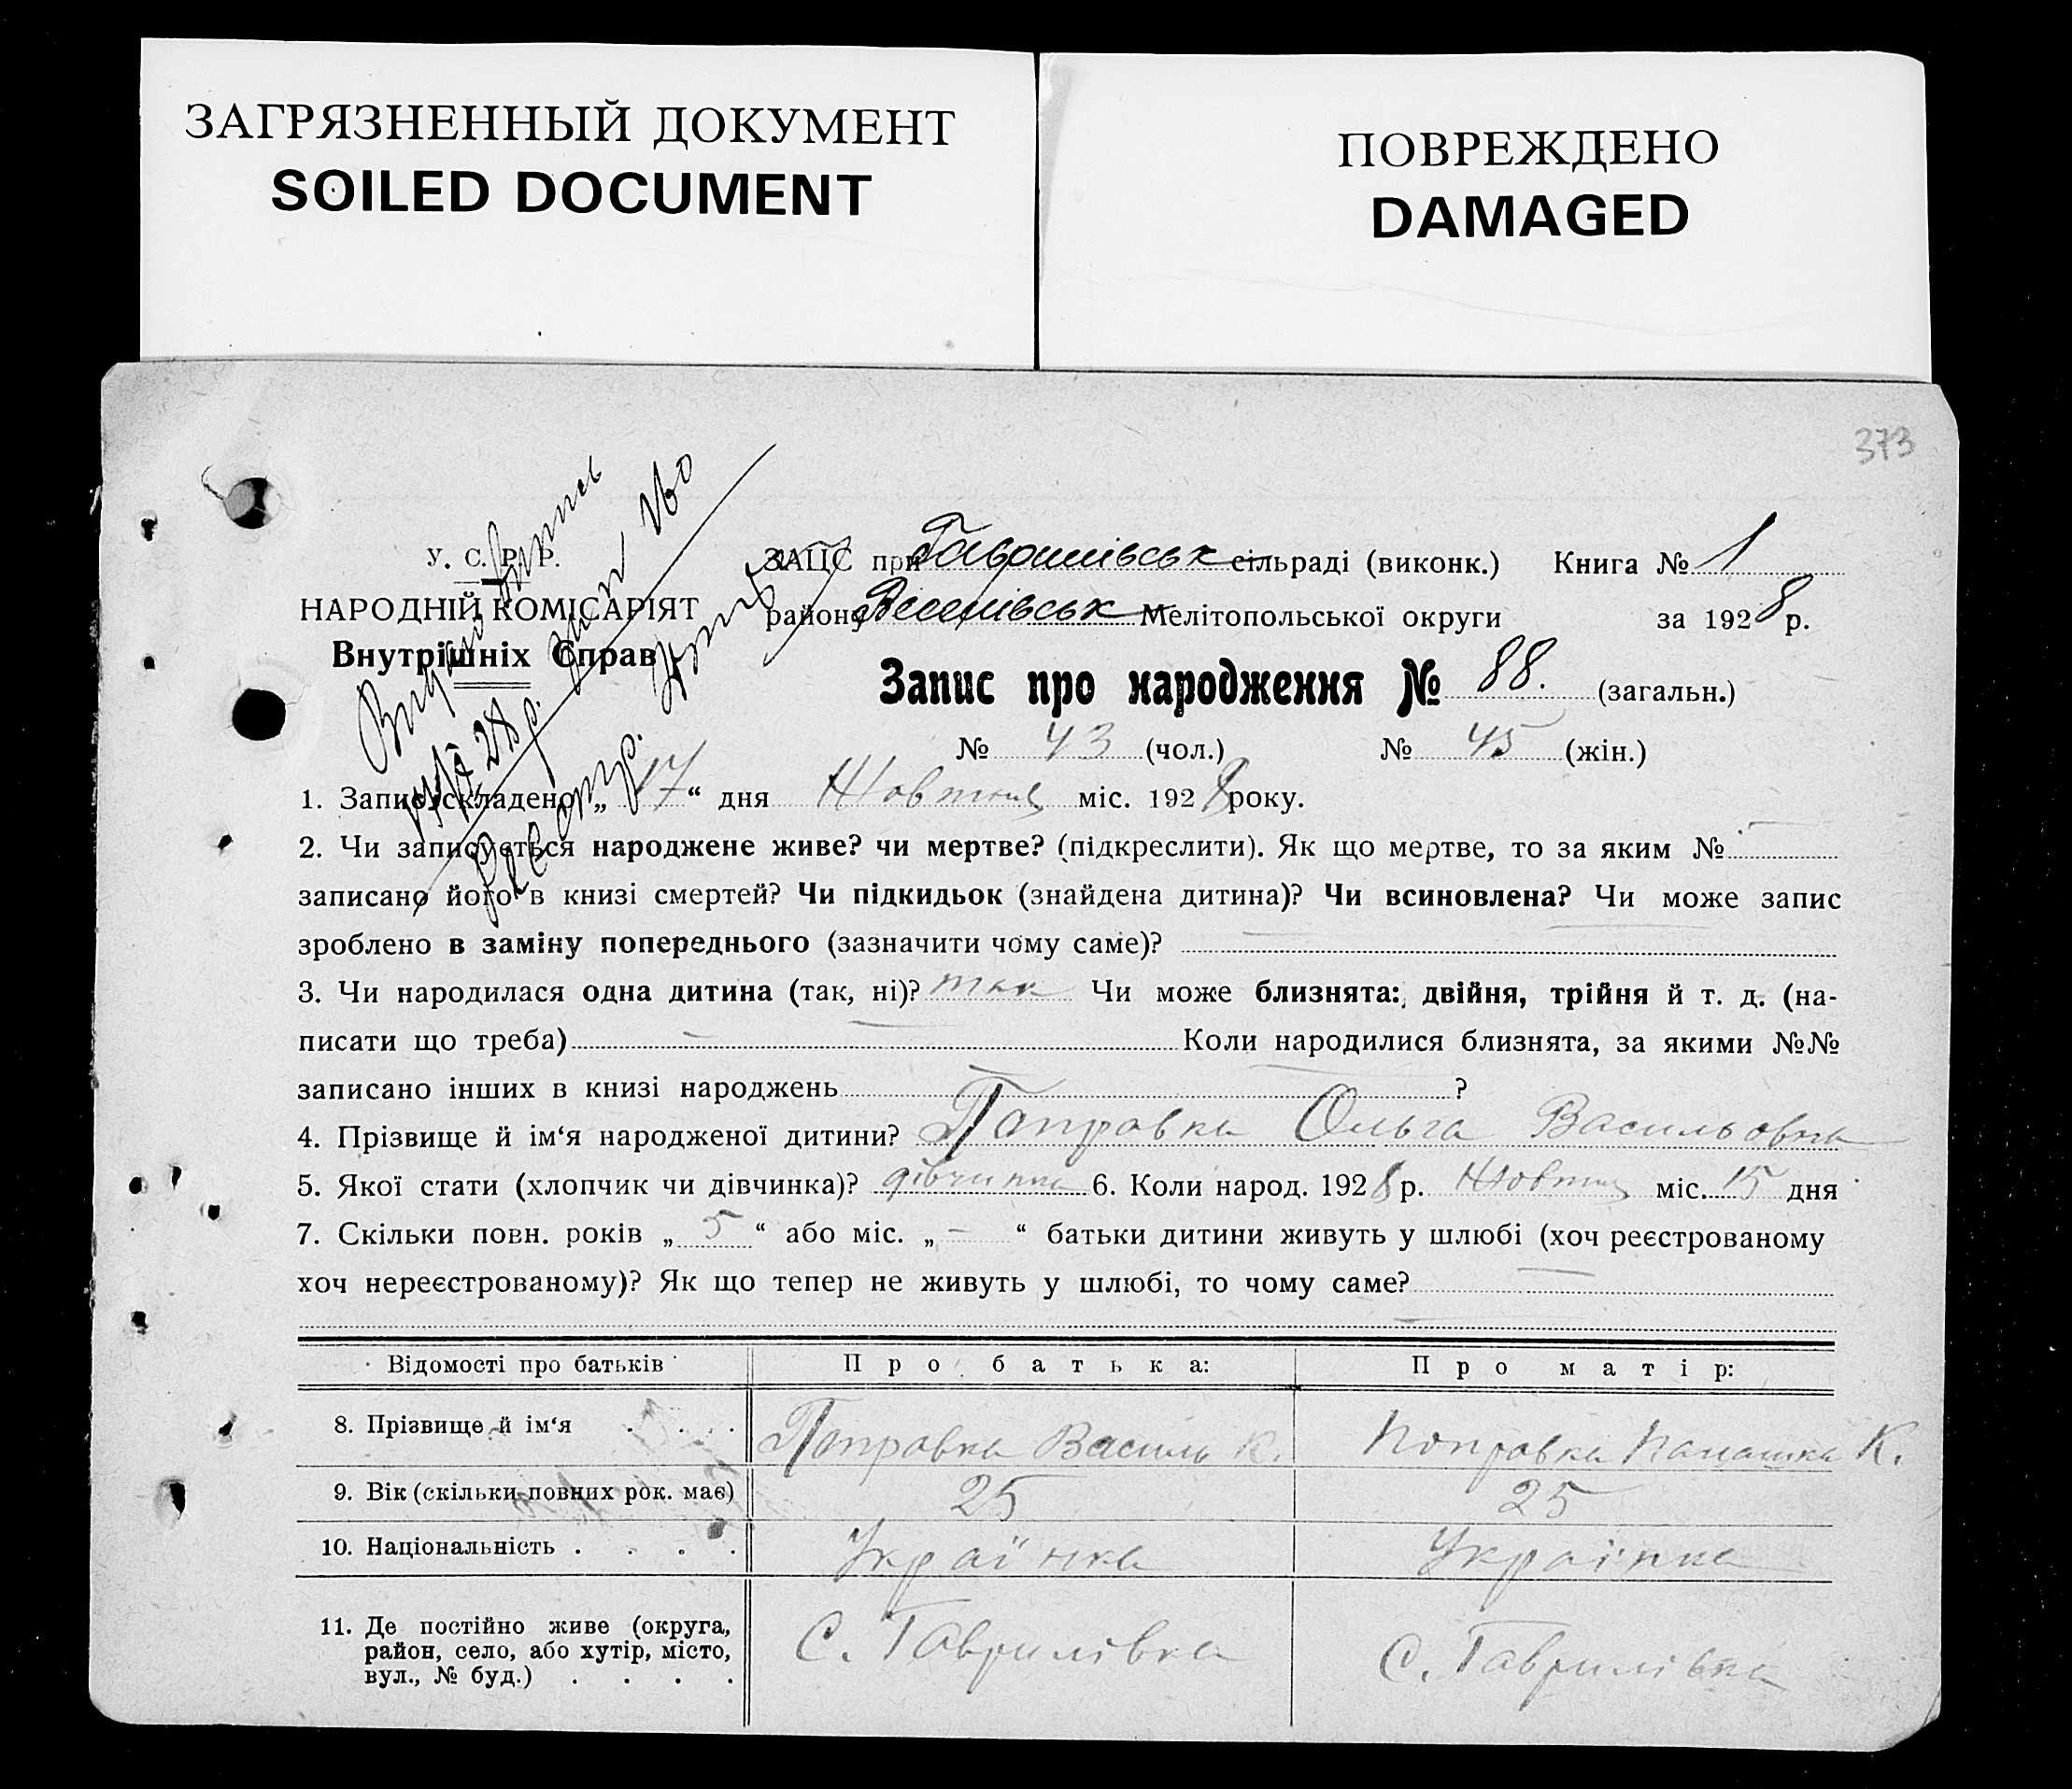 ЗАГРЯЗНЕННЫЙ ДОКУМЕНТ
SOILED DOCUMENT
ПОВРЕЖДЕНО
DAMAGED
373
У. С. Р. Р.
НАРОДНІЙ КОМІСАРІЯТ
Внутрішніх Справ
ЗАЦС при Гаврилівськ сільраді (виконк.) Книга № 1
району Веселівськ Мелітопольської округи за 1928 р.
Запис про народження № 88. (загальн.)
№ 43 (чол.) № 45 (жін.)
1. Запис складено „ 17 “ дня Жовтня міс. 1928 року.
2. Чи записується народжене живе? чи мертве? (підкреслити). Як що мертве, то за яким № –
записано його в книзі смертей? Чи підкидьок (знайдена дитина)? Чи всиновлена? Чи може запис
зроблено в заміну попереднього (зазначити чому саме)?
3. Чи народилася одна дитина (так, ні)? так Чи може близнята: двійня, трійня й т. д. (на-
писати що треба) – Коли народилися близнята, за якими №№
записано інших в книзі народжень ?
4. Прізвище й ім‘я народженої дитини? Поправка Ольга Васильовна
5. Якої стати (хлопчик чи дівчинка)? дівчинка 6. Коли народ. 1928 р. Жовтня міс. 15 дня
7. Скільки повн. років „ 5 “ або міс. „ – “ батьки дитини живуть у шлюбі (хоч реєстрованому
хоч нереєстрованому)? Як що тепер не живуть у шлюбі, то чому саме?
Відомості про батьків Про батька: Про матір:
8. Прізвище й ім‘я . . . . Поправка Василь К. Поправка К.
9. Вік (скільки повних рок. має) 25 25
10. Національність . . . . Українка Українка
11. Де постійно живе (округа,
район, село, або хутір, місто,
вул., № буд.) . . . .
С. Гаврилівка С. Гаврилівка